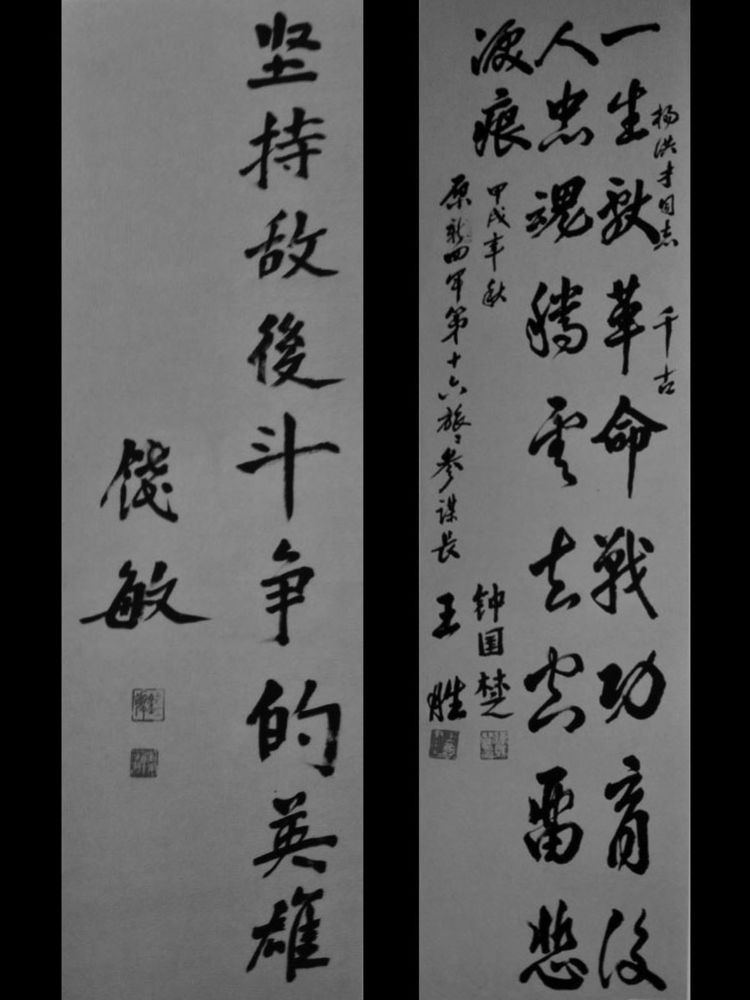 坚持敌後斗争的英雄
钱敏
杨洪才同志 千古
一生献革命战功育後
人忠魂腾云去空留悲
淚痕
甲戌年秋
原新四军第十六旅々参谋长
钟国楚
王胜